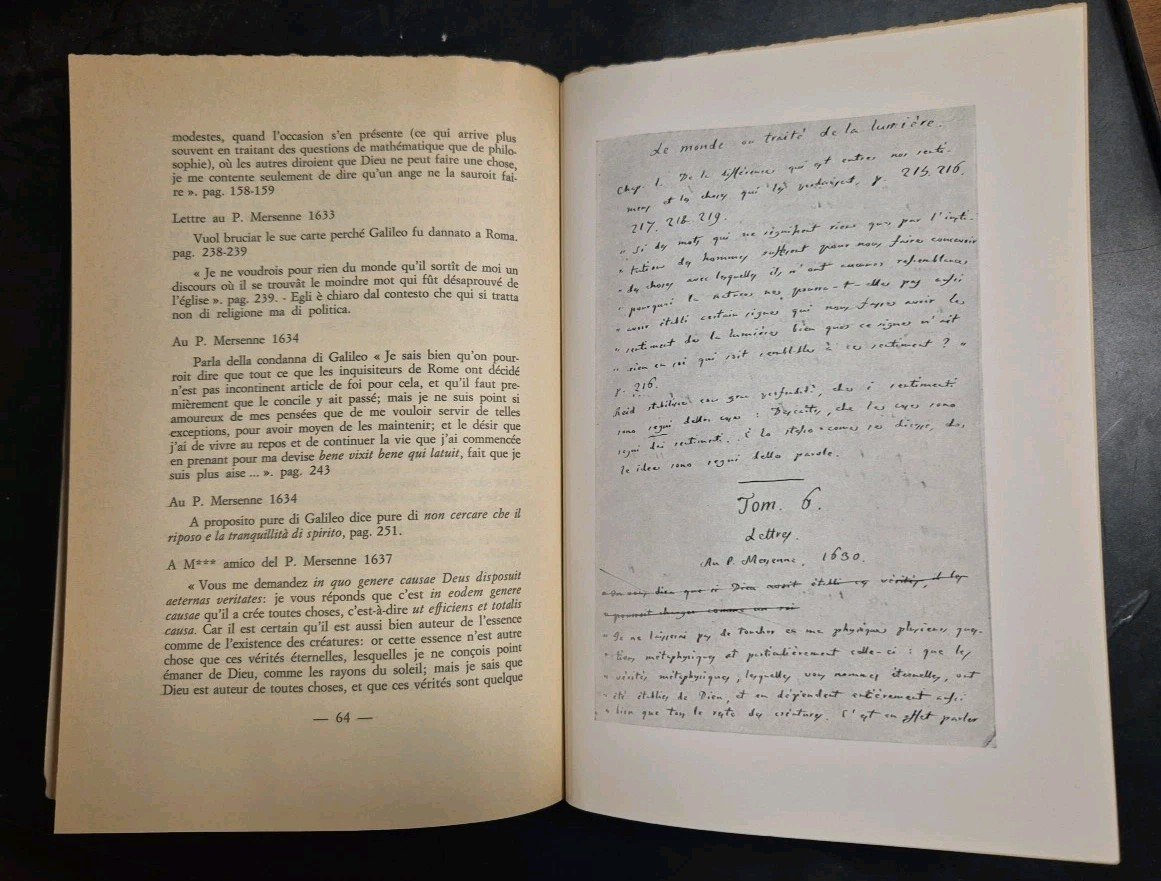 modestes, quand l'occasion s'en présente (ce qui arrive plus
souvent en traitant des questions de mathématique que de philo-
sophie), où les autres diroient que Dieu ne peut faire une chose,
je me contente seulement de dire qu'un ange ne la sauroit fai-
re ». pag. 158-159
Lettre au P. Mersenne 1633
Vuol bruciar le sue carte perché Galileo fu dannato a Roma.
pag. 238-239
« Je ne voudrois pour rien du monde qu'il sortît de moi un
discours où il se trouvât le moindre mot qui fût désaprouvé de
l'église ». pag. 239. - Egli è chiaro dal contesto che qui si tratta
non di religione ma di politica.
Au P. Mersenne 1634
Parla della condanna di Galileo « Je sais bien qu'on pour-
roit dire que tout ce que les inquisiteurs de Rome ont décidé
n'est pas incontinent article de foi pour cela, et qu'il faut pre-
mièrement que le concile y ait passé; mais je ne suis point si
amoureux de mes pensées que de me vouloir servir de telles
exceptions, pour avoir moyen de les maintenir; et le désir que
j'ai de vivre au repos et de continuer la vie que j'ai commencée
en prenant pour ma devise bene vixit bene qui latuit, fait que je
suis plus aise ... ». pag. 243
Au P. Mersenne 1634
A proposito pure di Galileo dice pure di non cercare che il
riposo e la tranquillità di spirito, pag. 251.
A M*** amico del P. Mersenne 1637
« Vous me demandez in quo genere causae Deus disposuit
aeternas veritates: je vous réponds que c'est in eodem genere
causae qu'il a crée toutes choses, c'est-à-dire ut efficiens et totalis
causa. Car il est certain qu'il est aussi bien auteur de l'essence
comme de l'existence des créatures: or cette essence n'est autre
chose que ces vérités éternelles, lesquelles je ne conçois point
émaner de Dieu, comme les rayons du soleil; mais je sais que
Dieu est auteur de toutes choses, et que ces vérités sont quelque
— 64 —
Le monde ou traité de la lumière.
Chap. 1. De la différence qui est entres nos senti-
mens et les choses qui les produisent, p. 215. 216.
217. 218. 219.
" Si des mots qui ne signifient rien que par l'insti-
" tution des hommes suffisent pour nous faire concevoir
" des choses avec lesquelles ils n'ont aucune ressemblance
" pourquoi la nature ne pourra-t-elle pas aussi
" avoir établi certain signes qui nous fasse avoir le
" sentiment de la lumière bien que ce signe n'ait
" rien en soi qui soit semblable à ce sentiment ? "
p. 216.
Reid stabilisce con gran profondità, che i sentimenti
sono segni delle cose : Descartes, che le cose sono
segni dei sentimenti. È lo stesso come se dicesse, che
le idee sono segni della parole.
Tom. 6.
Lettres.
Au P. Mersenne, 1630.
" On vous dira que si Dieu avoit établi ces vérités, il les
" pourroit changer comme un roi
" Je ne laisserai pas de toucher en ma physique plusieurs ques-
" tions métaphysiques et particulièrement celle-ci : que les
" vérités métaphysiques, lesquelles vous nommez éternelles, ont
" été établies de Dieu, et en dépendent entièrement aussi
" bien que tout le reste des créatures. C'est en effet parler